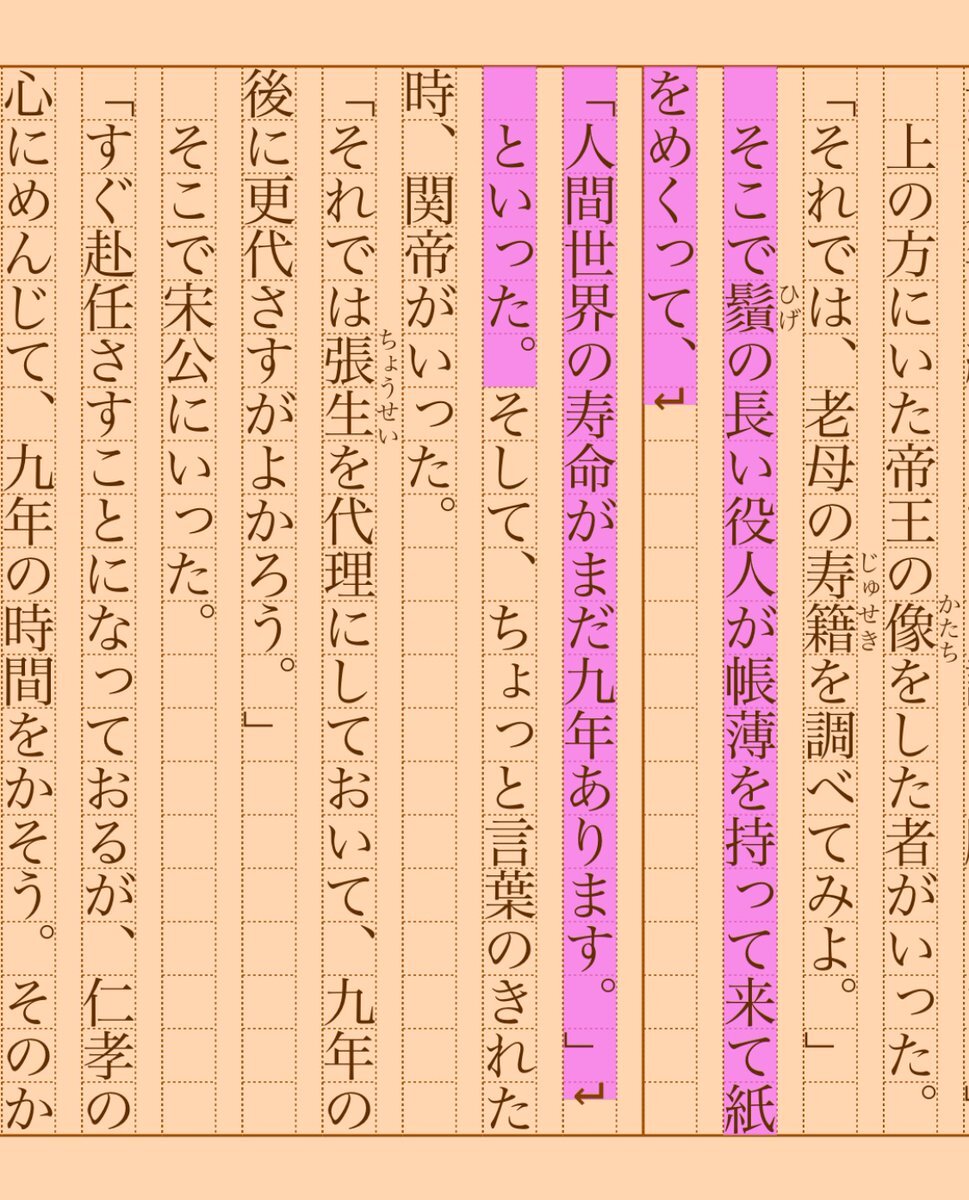 上の方にいた帝王の像をした者がいった。
かたち
「それでは、老母の寿籍を調べてみよ。」
じゅせき
そこで鬚の長い役人が帳薄を持って来て紙
ひげ
をめくって、↵
「人間世界の寿命がまだ九年あります。」↵
といった。そして、ちょっと言葉のきれた
時、関帝がいった。
「それでは張生を代理にしておいて、九年の
ちょうせい
後に更代さすがよかろう。」
そこで宋公にいった。
「すぐ赴任さすことになっておるが、仁孝の
心にめんじて、九年の時間をかそう。そのか